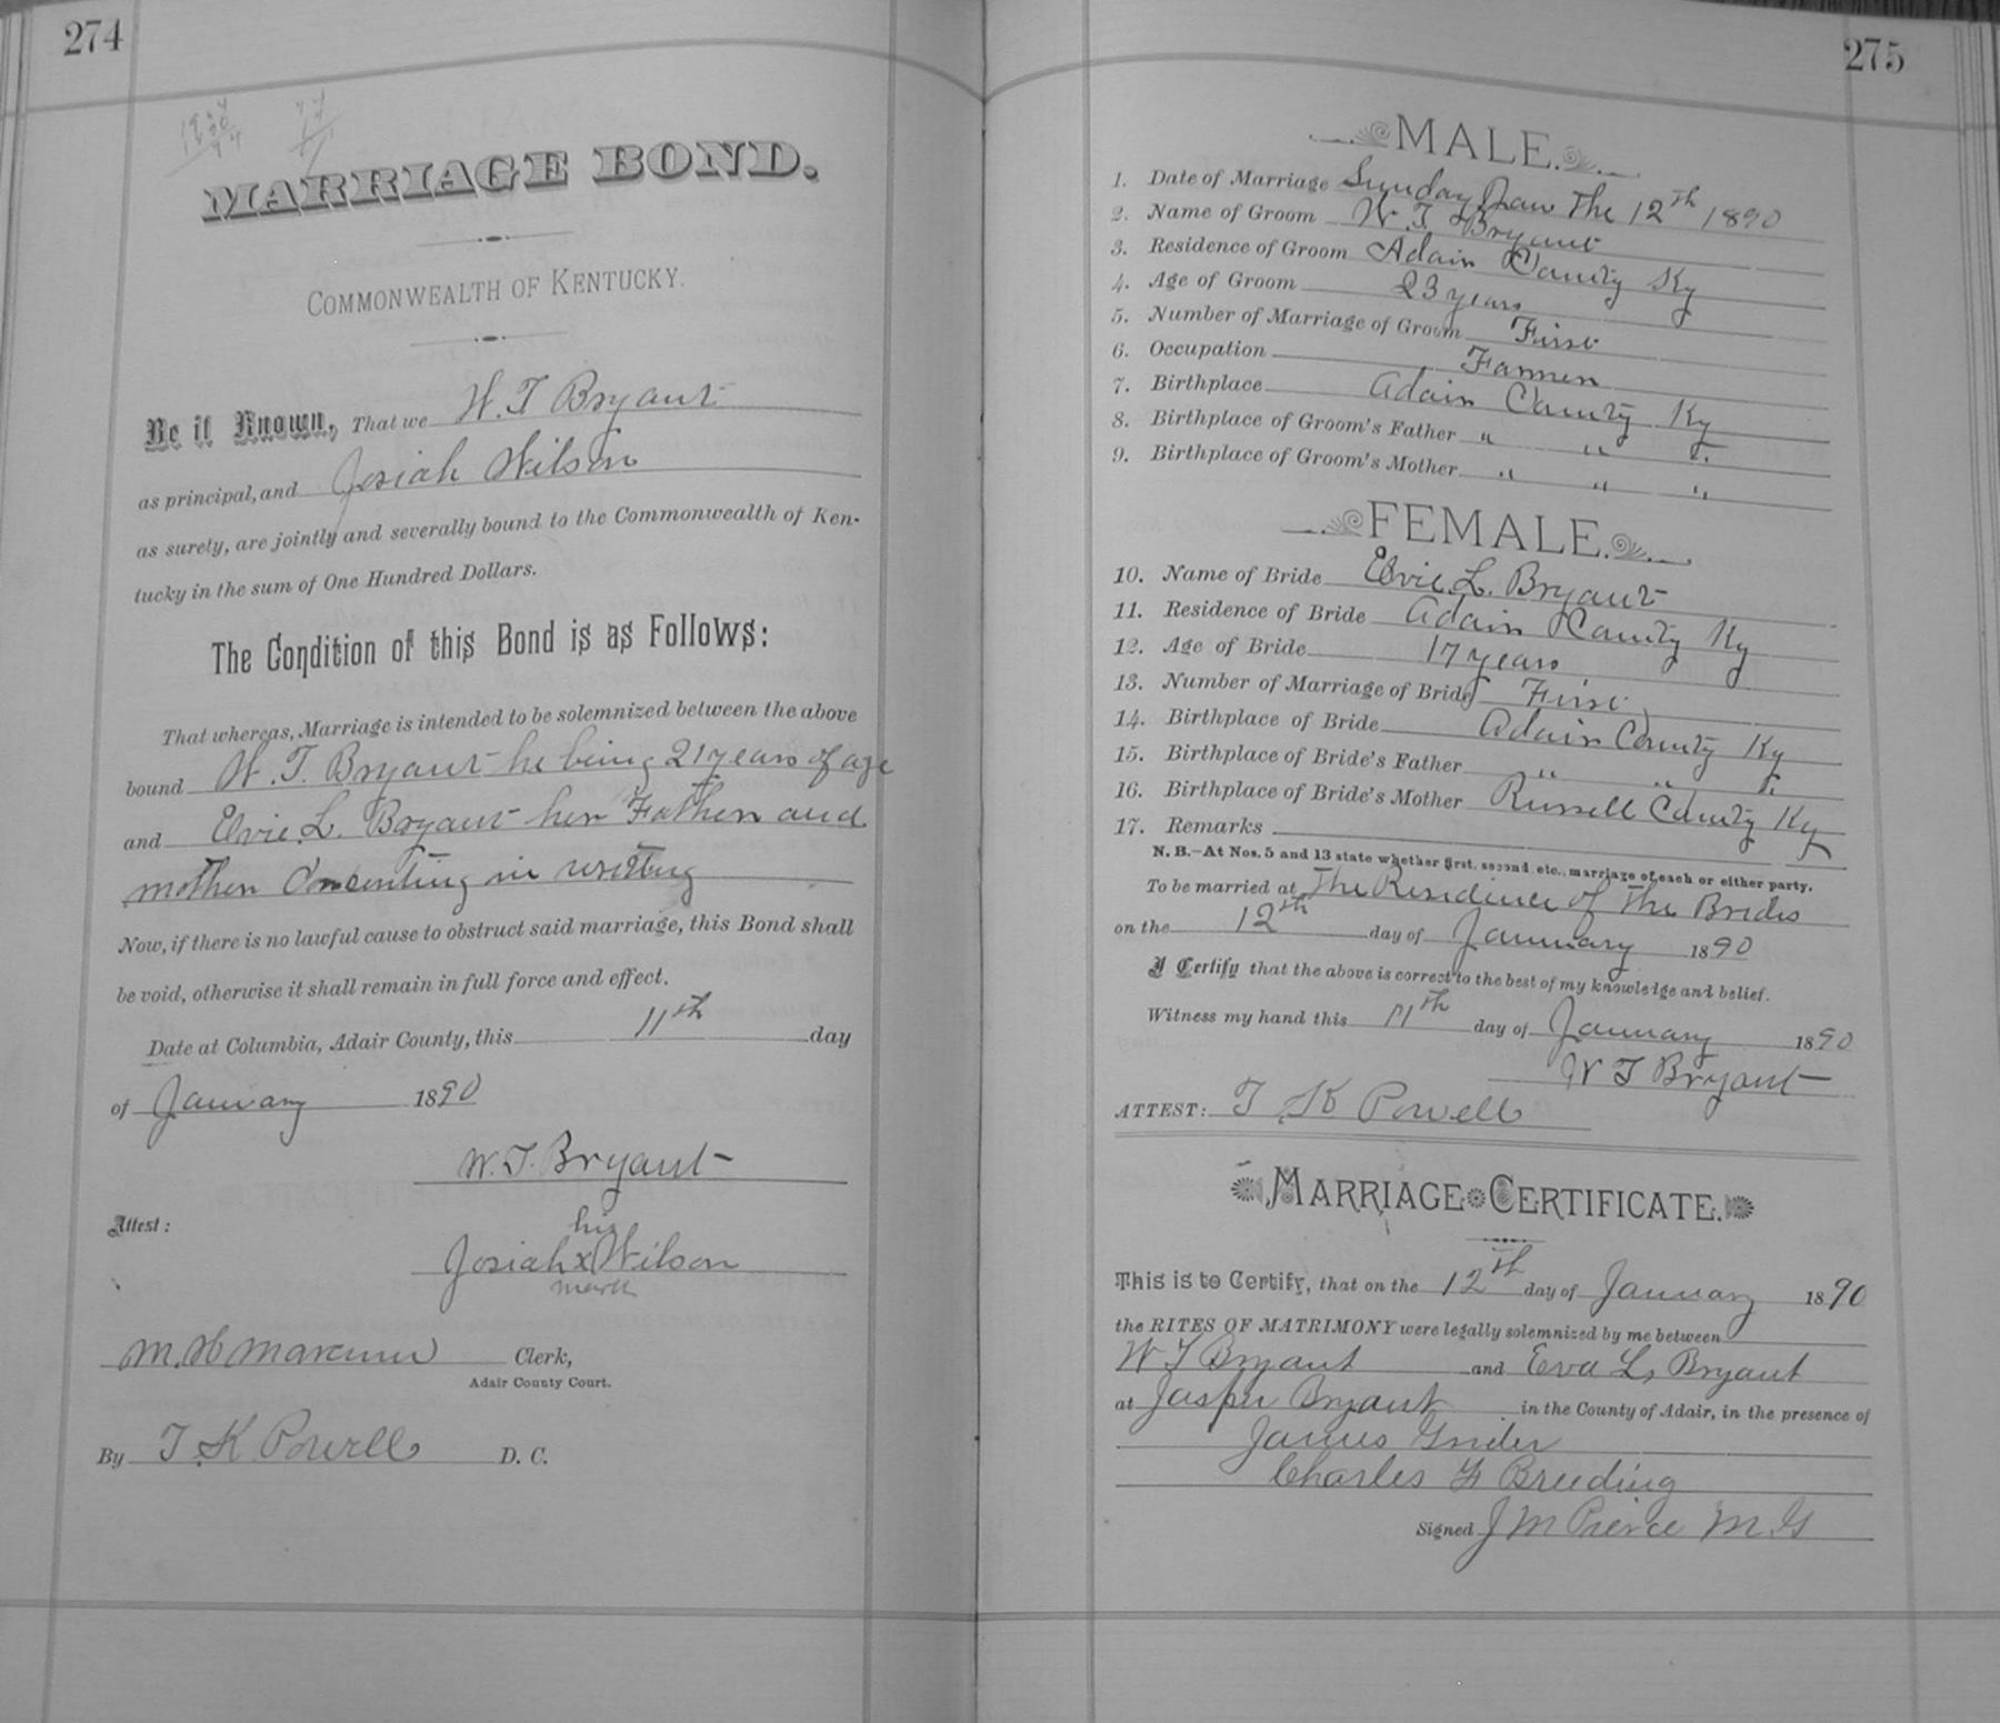 274
MARRIAGE BOND.
COMMONWEALTH OF KENTUCKY.
Be it Known, That we W. T Bryant
as principal, and Josiah Wilson
as surety, are jointly and severally bound to the Commonwealth of Ken-
tucky in the sum of One Hundred Dollars.
The Condition of this Bond is as Follows:
That whereas, Marriage is intended to be solemnized between the above
bound W. T. Bryant he being 21 years of age
and Elvie L. Bryant her Father and
mother Concenting in writing
Now, if there is no lawful cause to obstruct said marriage, this Bond shall
be void, otherwise it shall remain in full force and effect.
Date at Columbia, Adair County, this 11th day
of January 1890
W. T. Bryant
Attest:
his
Josiah x Wilson
mark
M. H Marcum Clerk,
Adair County Court.
By T. K Powell D. C.
275
MALE.
1. Date of Marriage Sunday Jan The 12th 1890
2. Name of Groom W. T. Bryant
3. Residence of Groom Adair County Ky
4. Age of Groom 23 years
5. Number of Marriage of Groom First
6. Occupation Farmer
7. Birthplace Adair County Ky
8. Birthplace of Groom's Father " " "
9. Birthplace of Groom's Mother " " "
FEMALE.
10. Name of Bride Elvie L. Bryant
11. Residence of Bride Adair County Ky
12. Age of Bride 17 years
13. Number of Marriage of Bride First
14. Birthplace of Bride Adair County Ky
15. Birthplace of Bride's Father " " "
16. Birthplace of Bride's Mother Russell County Ky
17. Remarks
N. B.—At Nos. 5 and 13 state whether first, second etc., marriage of each or either party.
To be married at The Residence of The Brides
on the 12th day of January 1890
I Certify that the above is correct to the best of my knowledge and belief.
Witness my hand this 11th day of January 1890
W T Bryant
ATTEST: T K Powell
MARRIAGE CERTIFICATE.
This is to Certify, that on the 12th day of January 1890
the RITES OF MATRIMONY were legally solemnized by me between
W T Bryant and Eva L, Bryant
at Jasper Bryant in the County of Adair, in the presence of
James Grider
Charles F Breeding
Signed J M Pierce M. G